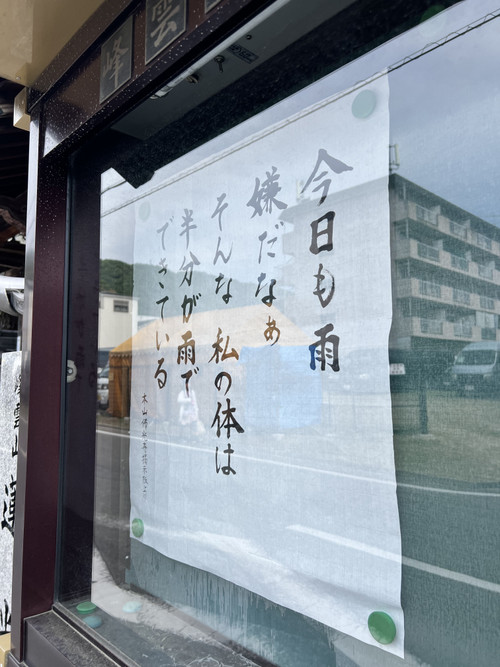 今日も雨
嫌だなぁ
そんな私の体は
半分が雨で
できている
雲
峰